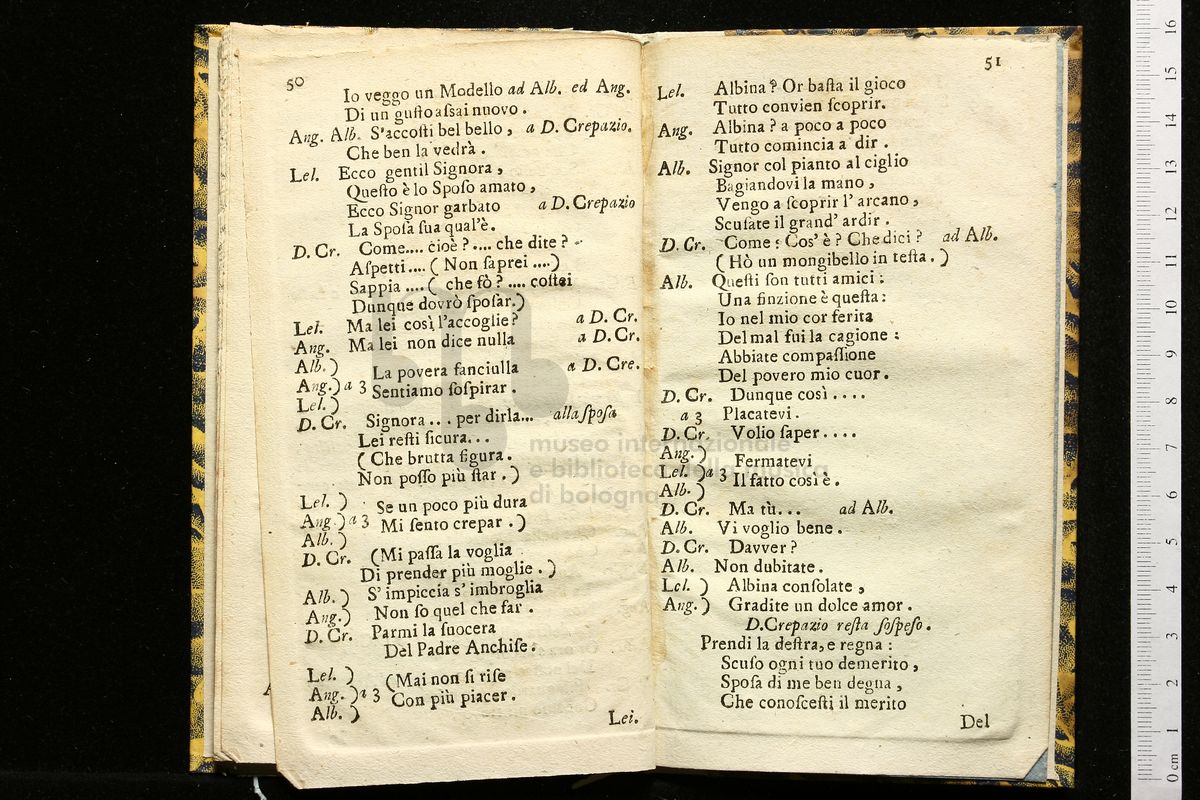 50
Io veggo un Modello ad Alb. ed Ang.
Di un gusto assai nuovo.
Ang. Alb. S'accosti bel bello, a D. Crepazio.
Che ben la vedrà.
Lel. Ecco gentil Signora,
Questo è lo Sposo amato,
Ecco Signor garbato a D. Crepazio
La Sposa sua qual'è.
D. Cr. Come.... cioè?.... che dite?
Aspetti.... ( Non saprei ....)
Sappia ....( che fò? .... costei
Dunque dovrò sposar.)
Lel. Ma lei così l'accoglie? a D. Cr.
Ang. Ma lei non dice nulla a D. Cr.
Alb. )
La povera fanciulla a D. Cre.
Ang. ) a 3 Sentiamo sospirar.
Lel. )
D. Cr. Signora... per dirla... alla sposa
Lei resti sicura...
( Che brutta figura.
Non posso più star. )
Lel. ) Se un poco più dura
Ang. ) a 3 Mi sento crepar. )
Alb. )
D. Cr. (Mi passa la voglia
Di prender più moglie. )
Alb. ) S' impiccia s' imbroglia
Ang. ) Non so quel che far.
D. Cr. Parmi la suocera
Del Padre Anchise.
Lel. ) (Mai non si rise
Ang. ) a 3 Con più piacer.
Alb. )
Lei.
51
Lel. Albina? Or basta il gioco
Tutto convien scoprir.
Ang. Albina? a poco a poco
Tutto comincia a dir.
Alb. Signor col pianto al ciglio
Bagiandovi la mano,
Vengo a scoprir l' arcano,
Scusate il grand' ardir.
D. Cr. Come: Cos' è? Che dici? ad Alb.
( Hò un mongibello in testa. )
Alb. Questi son tutti amici:
Una finzione è questa:
Io nel mio cor ferita
Del mal fui la cagione:
Abbiate compassione
Del povero mio cuor.
D. Cr. Dunque così....
a 3 Placatevi.
D. Cr. Volio saper....
Ang. )
Fermatevi
Lel. ) a 3 Il fatto così è.
Alb. )
D. Cr. Ma tù... ad Alb.
Alb. Vi voglio bene.
D. Cr. Davver?
Alb. Non dubitate.
Lel. ) Albina consolate,
Ang. ) Gradite un dolce amor.
D. Crepazio resta sospeso.
Prendi la destra, e regna:
Scuso ogni tuo demerito,
Sposa di me ben degna,
Che conoscesti il merito
Del
museo internazionale
e biblioteca della musica
di bologna
0 cm 1 2 3 4 5 6 7 8 9 10 11 12 13 14 15 16